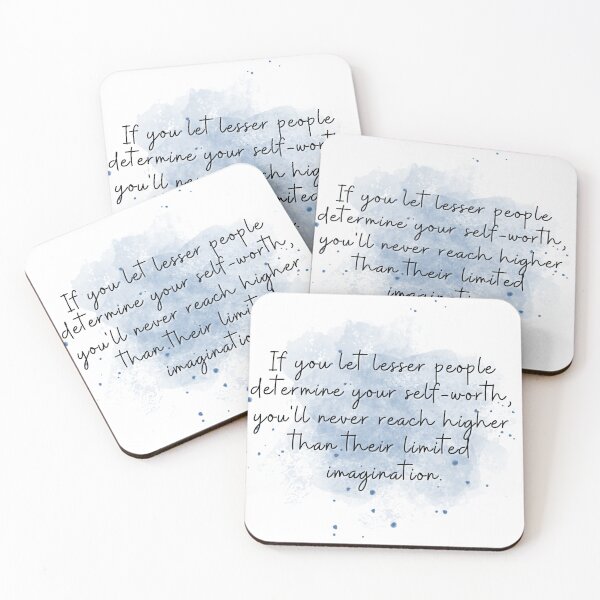 If you let lesser people
determine your self-wort
you'll ne
ch hig
If you let lesser people
determine your self-worth,
you'll never reach higher
than their limited
If you let lesser people
determine your self-worth,
you'll never reach higher
than their limit
imagination
If you let lesser people
determine your self-worth,
you'll never reach higher
than their limited
imagination.